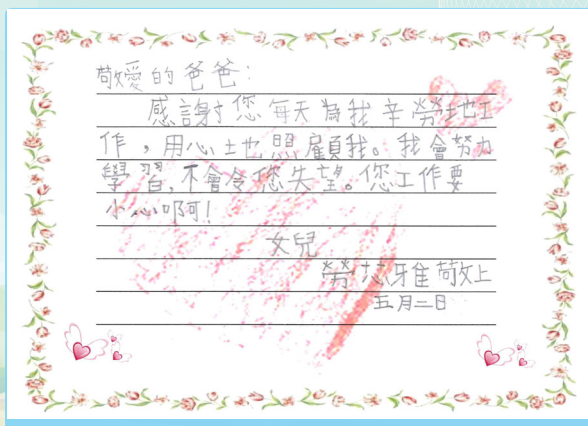 敬愛的爸爸：
感謝您每天為我辛勞地工
作，用心地照顧我。我會努力
學習，不會令您失望。您工作要
小心啊！
女兒
勞芯雅敬上
五月二日